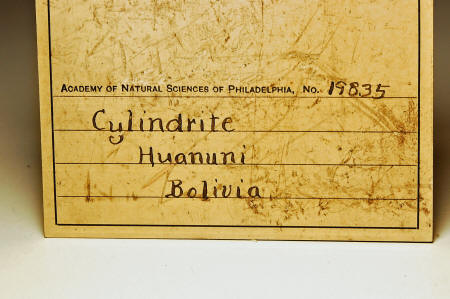 Academy of Natural Sciences of Philadelphia, No. 19835
Cylindrite
Huanuni
Bolivia